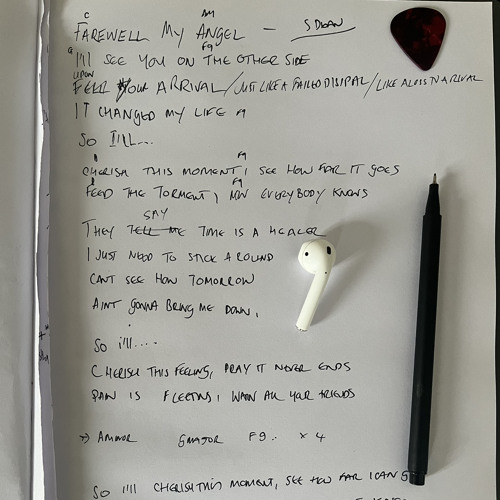 C Am
FAREWELL MY ANGEL — S DLAN
G F9
I'll SEE YOU ON THE OTHER SIDE
UPON
FELL YOUR ARRIVAL / JUST LIKE A FAILED / LIKE A IN A RIVAL
IT CHANGED MY LIFE F9
SO I'LL...
F9
CHERISH THIS MOMENT, SEE HOW FAR IT GOES
F9
FEED THE TORMENT, NOW EVERYBODY KNOWS
SAY
THEY TELL ME TIME IS A HEALER
I JUST NEED TO STICK AROUND
CANT SEE HOW TOMORROW
AINT GONNA BRING ME DOWN,
SO I'll....
CHERISH THIS FEELING, PRAY IT NEVER ENDS
PAIN IS FLEETING, WARN ALL YOUR FRIENDS
→ AMINOR GMAJOR F9.. x 4
SO I'll CHERISH THIS MOMENT, SEE HOW FAR I CAN